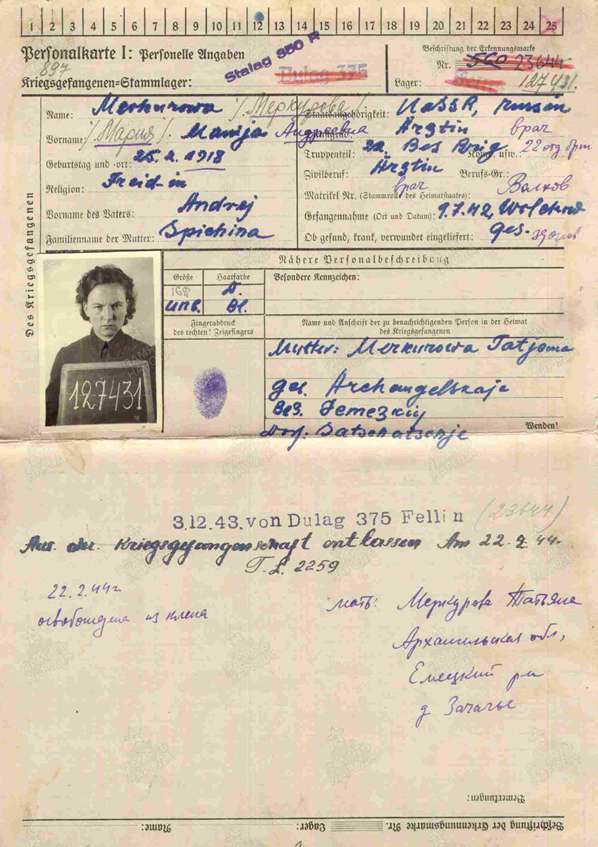 1 2 3 4 5 6 7 8 9 10 11 12 13 14 15 16 17 18 19 20 21 22 23 24 25
Personalkarte I: Personelle Angaben
Beschriftung der Erkennungsmarke
897
Stalag 350 R
Nr. 560 23644
Kriegsgefangenen-Stammlager: Dulag 375
Lager: 127431
Des Kriegsgefangenen
Name: Merkurowa /Меркурова/
Staatsangehörigkeit: UdSSR, russin
Vorname: /Мария/ Marija Андреевна
Ärztin врач
Geburtstag und -ort: 25.2.1918
Truppenteil: 22 Kom. usw.: 22 отд
Religion:
Zivilberuf: Ärztin Berufs-Gr.:
врач
Vorname des Vaters: Andrej
Matrikel Nr. (Stammrolle des Heimatstaates):
Gefangennahme (Ort und Datum): 9.7.42, Wolchow Волхов
Familienname der Mutter: Spichina
Ob gesund, krank, verwundet eingeliefert: ges. здоров
Nähere Personalbeschreibung
Größe Haarfarbe Besondere Kennzeichen:
168 D.
Bl.
Fingerabdruck
des rechten! Zeigefingers
Name und Anschrift der zu benachrichtigenden Person in der Heimat
des Kriegsgefangenen
Mutter: Merkurowa Tatjana
Archangelskaje
Bes. Jemezkij
Dorf
Wenden!
127431
3.12.43. von Dulag 375 Fellin (23644)
Aus der Kriegsgefangenschaft entlassen Am 22.2.44.
2259
22.2.44г
освобождена из плена
мать: Меркурова Татьяна
Архангельская обл,
Емецкий р-н
д Зачачье
Bemerkungen:
Beschriftung der Erkennungsmarke Nr. Lager: Name: